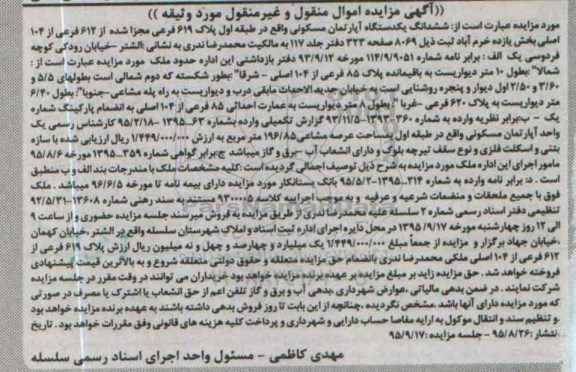 ((آگهی مزایده اموال منقول و غیرمنقول مورد وثیقه ))
مورد مزایده عبارت است از: ششدانگ یکدستگاه آپارتمان مسکونی واقع در طبقه اول پلاک ۶۱۹ فرعی مجزا شده از ۶۱۲ فرعی از ۱۰۴
اصلی بخش یازده خرم آباد ثبت ذیل ۸۰۶۹ صفحه ۳۲۳ دفتر جلد ۱۱۷ به مالکیت محمدرضا ندری به نشانی الشتر -خیابان رودکی کوچه
فردوسی یک الف : برابر نامه شماره ۱۱۴/۹/۹۰۵۱ مورخه ۹۳/۹/۱۲ دفتر بازداشتی این اداره حدود ملک مورد مزایده عبارت است از :
شمالا" :بطول ۱۰ متر دیواریست به باقیمانده پلاک ۸۵ فرعی از ۱۰۴ اصلی - شرقا" بطور شکسته که دوم شمالی است بطولهای ۵/۵ و
۳/۶۰ و ۲/۵۰ اول دیوار و پنجره روشنایی است به خیابان جدید الاحداث مابقی درب و دیواریست به راه پله مشاعی -جنوبا" بطول ۶/۴۰
متر دیواریست به پلاک ۶۲۰ فرعی -غربا ":بطول ۸ متر دیواریست به عمارت احداثی ۸۵ فرعی از ۱۰۴ اصلی به انضمام پارکینگ شماره
یک - ب:برابر نظریه وارده به شماره ۳۶۰-۱۳۹۳-۹۳/۱۱/۵ گزارش تکمیلی وارده بشماره ۶۳-۱۳۹۵-۹۵/۲/۱۸ کارشناس رسمی یک
واحد آپارتمان مسکونی واقع در طبقه اول بمساحت عرصه مشاعی ۱۹۶/۸۵ متر مربع به ارزش ۱/۴۴۹/۰۰۰/۰۰۰ ریال ارزیابی شده با سازه
بتنی و اسکلت فلزی و نوع سقف تیرچه بلوک و دارای انشعاب آب - برق و گاز میباشد ج:برابر گواهی شماره ۳۵۹...۱۳۹۵ مورخه ۹۵/۸/۶
مامور اجرای این اداره ملک مورد مزایده به شرح ذیل توصیف اجمالی گردیده است :کلیه مشخصات ملک با مندرجات بند الف وب منطبق
است . د: برابر نامه وارده به شماره ۳۱۴-۱۳۹۵-۹۵/۵/۲ بانک بستانکار مورد مزایده دارای بیمه نامه تا مورخه ۹۶/۶/۵ میباشد . ملک
فوق با جمیع ملحقات و منضمات شرعیه و عرفیه در پرونده اجراییه کلاسه ۹۳۰۰۰۲۳ مستند به سند رهنی شماره ۱۳۶۰۸-۹۲/۵/۳۱
تنظیمی دفتر اسناد رسمی شماره ۲ سلسله علیه محمدرضا ندری از طریق مزایده به فروش میرسد جلسه مزایده حضوری و از ساعت ۹
الی ۱۲ روز چهارشنبه مورخه ۱۳۹۵/۹/۱۷ در محل دایره اجرای اداره ثبت اسناد و املاک شهرستان سلسله واقع در الشتر ،خیابان کهمان
،خیابان جهاد برگزار و مزایده از جمعاً مبلغ ۱/۴۴۹/۰۰۰/۰۰۰ یک میلیارد و چهارصد و چهل و نه میلیون ریال ارزش پلاک ۶۱۹ فرعی از
۶۱۲ فرعی از ۱۰۴ اصلی ملکی محمدرضا ندری بانضمام حق مزایده متعلقه و حقوق دولتی متعلقه شروع و به بالاترین قیمت پیشنهادی
فروخته خواهد شد. حق مزایده زاید بر مبلغ مزایده بر عهده برنده مزایده خواهد بود خریداران می توانند در وقت مقرر در جلسه مزایده
شرکت نمایند . در ضمن بدهی مالیاتی ،عوارض شهرداری ،بدهی آب و برق و گاز تلفن اعم از حق انشعاب یا اشتراک یا مصرف در صورتی
که مورد مزایده دارای آنها باشد .مشخص نگردیده ،چنانچه از این بابت تا روز فروش بدهی داشته باشند به عهده برنده مزایده خواهد بود
.و تنظیم سند و انتقال موکول به ارایه مفاصا حساب دارایی و شهرداری و پرداخت کلیه هزینه های قانونی وفق مقررات خواهد بود . تاریخ
انتشار :۹۵/۸/۲۶ - جلسه مزایده :۹۵/۹/۱۷
مهدی کاظمی - مسئول واحد اجرای اسناد رسمی سلسله